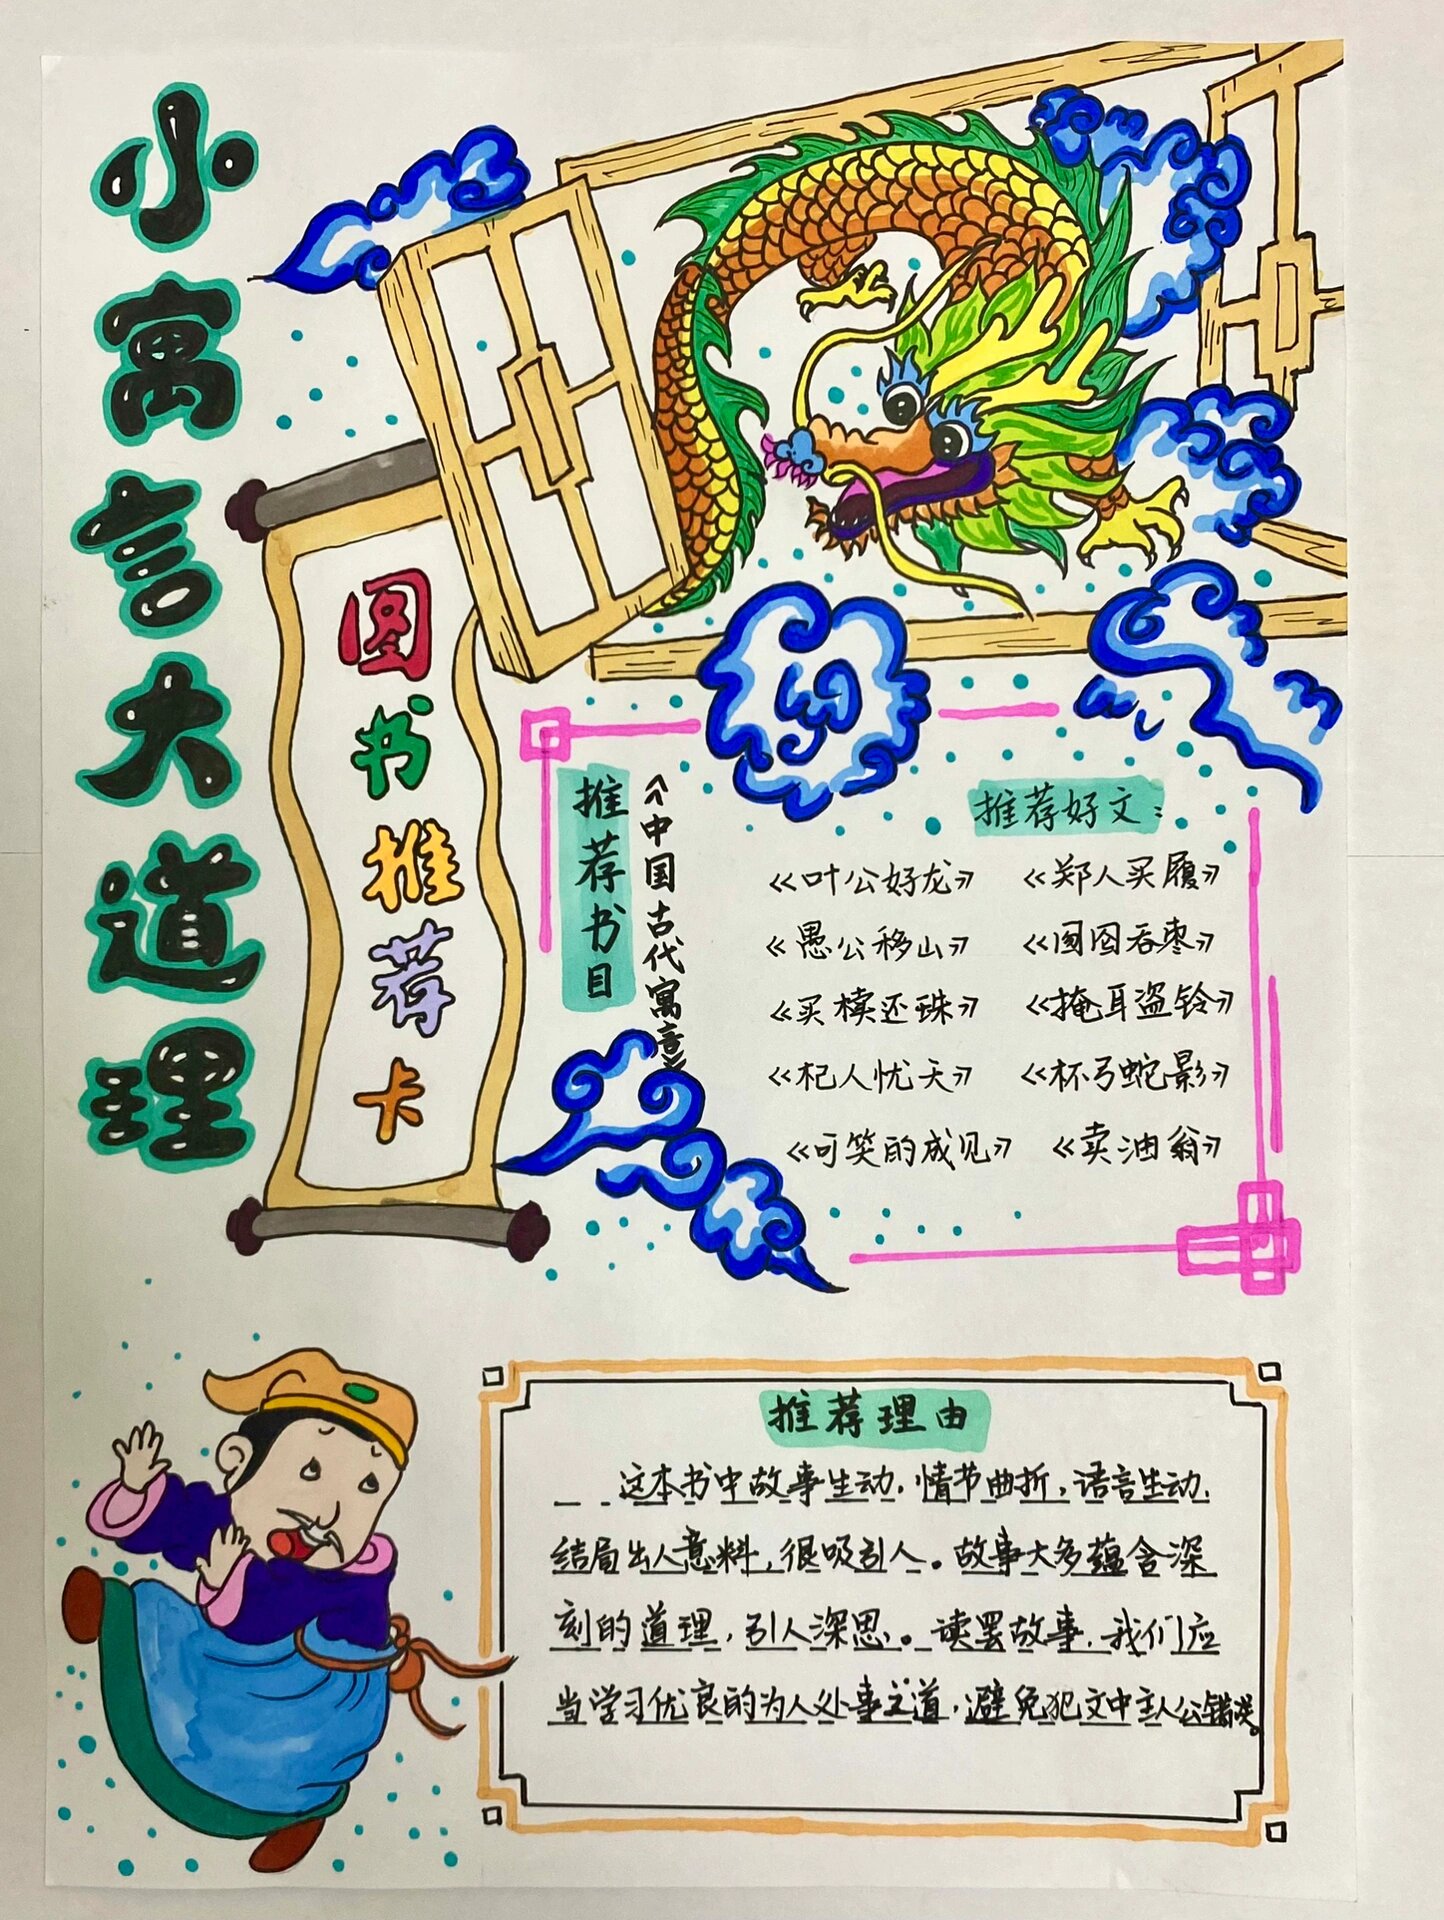 小寓言大道理
图书推荐卡
推荐书目
《中国古代寓言》
推荐好文：
《叶公好龙》 《郑人买履》
《愚公移山》 《囫囵吞枣》
《买椟还珠》 《掩耳盗铃》
《杞人忧天》 《杯弓蛇影》
《可笑的成见》 《卖油翁》
推荐理由
这本书中故事生动，情节曲折，语言生动，
结局出人意料，很吸引人。故事大多蕴含深
刻的道理，引人深思。读罢故事，我们应
当学习优良的为人处事之道，避免犯文中主人公错误。